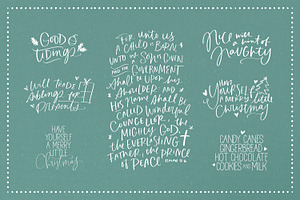 GOOD
tidings
Will trade
siblings for
Presents
HAVE
YOURSELF
A MERRY
LITTLE
Christmas
For unto us
A CHILD is BORN
UNTO us A SON is Given
AND THE GOVERNMENT
Shall be upon His
Shoulder AND
His Name shall be
Called Wonderful
COUNSELOR THE
MIGHTY GOD
THE EVERLASTING
Father, THE PRINCE
of PEACE
Nice with
a hint of
Naughty
Have
Yourself
A Merry Little
Christmas
CANDY CANES
GINGERBREAD
HOT CHOCOLATE
COOKIES AND MILK